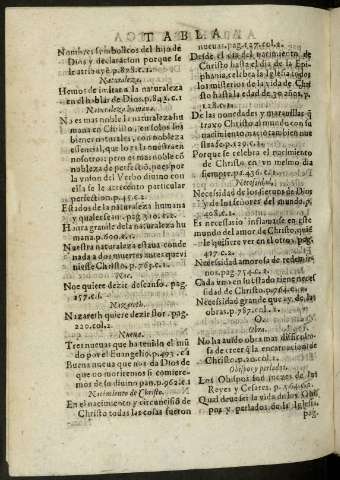 TABLA
Nombres simbolicos del hijo de
Dios y declaracion porque se
le atribuyē p.828.c.1.
Naturaleza.
Hemos de imitar a la naturaleza
en el hablar de Dios.p.842.c.1
Naturaleza humana.
No es mas noble la naturaleza hu
mana en Christo, en solos los
bienes naturales, con nobleza
essencial, que lo es la nuestra en
nosotros: pero es mas noble con
nobleza de perfeciō, pues por
la vnion del Verbo diuino con
ella se le acrecento particular
perfection.p.45.c.1.
Estados de la naturaleza humana
y quales sean.pag 310.c.2.
Hanra grande de la naturaleza hu
mana.p.600.c.1.
Nuestra naturaleza estaua conde
nada a dos muertes antes que vi
niesse Christo.p.763.c.1.
Noe.
Noe quiere dezir descanso.pag.
157.c.1.
Nazareth.
Nazareth quiere dezir flor. pag.
220.col.2.
Nueua.
Tres nueuas que ha tenido el mū
do por el Euangelio.p.493.c.1
Buena nueua que nos da Dios de
que no moriremos si comiere-
mos de su diuino pan.p.962.c.1
Nacimiento de Christo.
En el nacimiento y circuncisiō de
Christo todas las cosas fueron
nueuas.pag.137.col.2.
Desde el dia del nacimiento de
Christo hasta el dia de la Epi-
phania, celebra la Iglesia todos
los misterios de la vida de Chris
to hasta la edad de 30.años.p.
128.c.1.
De las nouedades y marauillas q̄
traxo Christo al mundo con su
nacimiento, nacian bien nues
tro.p.129.c.1.
Porque se celebra el nacimiento
de Christo en vn mesmo dia
siempre.p.436.c.1.
Necessidad.
Necesidad de los sieruos de Dios
y de los señores del mundo.p.
408.c.1.
Es necessario inflamarse en este
mundo del amor de Christo, quiē
le quisiere ver en el otro.pag.
417.c.2.
Necessidad amorosa de redemir-
nos.pag.754.c.2.
Cada vno en su estado tiene neces
sidad de Christo.p.764.c.2.
Necessidad grande que ay de las
obras.p.787.col.2.
O.
Obra.
No ha auido obra mas dificulto-
sa de creer q̄ la encarnacion de
Christo.p.20.col.1.
Obispos y perlados.
Los Obispos son juezes de los
Reyes y Cesares.p.564.c.2.
Qual deue ser la vida de los Obis
pos y perlados de la Iglesia.
pag.